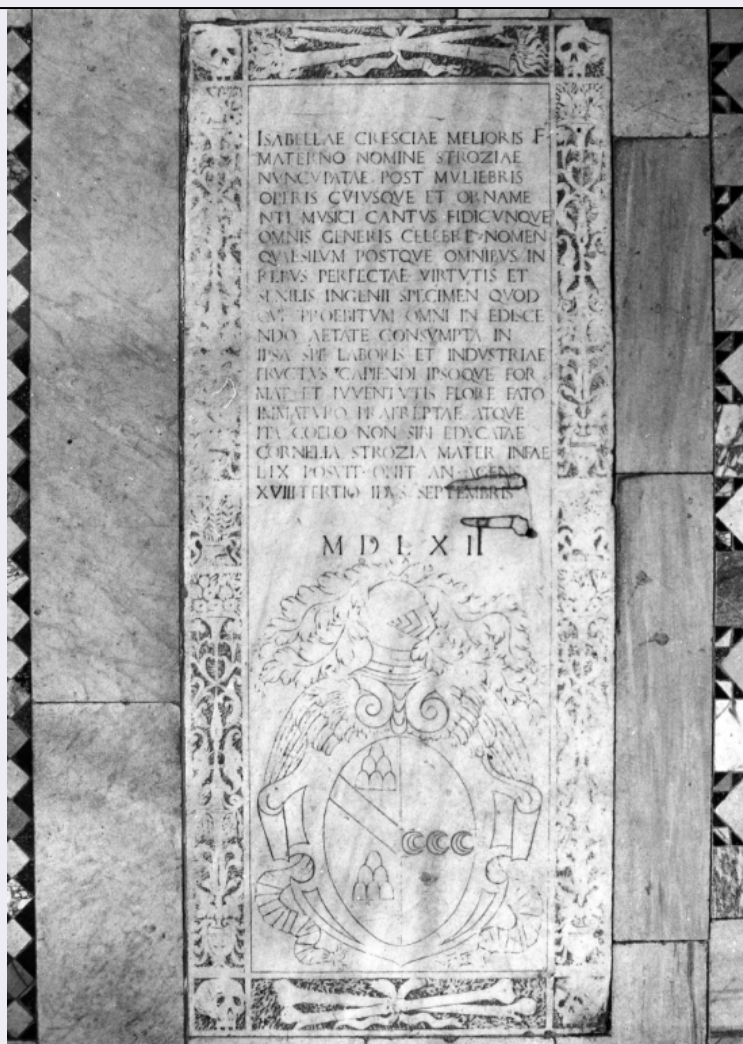 ISABELLAE CRESCIAE MELIORIS F
MATERNO NOMINE STROZIAE
NVNCVPATAE POST MVLIEBRIS
OPERIS CVIVSQVE ET ORNAME
NTI MVSICI CANTVS FIDICVNQVE
OMNIS GENERIS CELEBRE NOMEN
QVAESITVM POSTQVE OMNIBVS IN
REBVS PERFECTAE VIRTVTIS ET
INGENII SPECIMEN QVOD
OMNI IN EDISCE
NDO AETATE CONSVMPTA IN
IPSA SPE LABORIS ET INDVSTRIAE
FRVCTVS CAPIENDI IPSOQVE FOR
MAE ET IVVENTVTIS FLORE FATO
IMMATVRO PRAEREPTAE ATQVE
ITA COELO NON SIBI EDVCATAE
CORNELIA STROZIA MATER INFAE
LIX POSVIT OBIIT AN AGENS
XVIII TERTIO IDVS SEPTEMBRIS
MDLXII